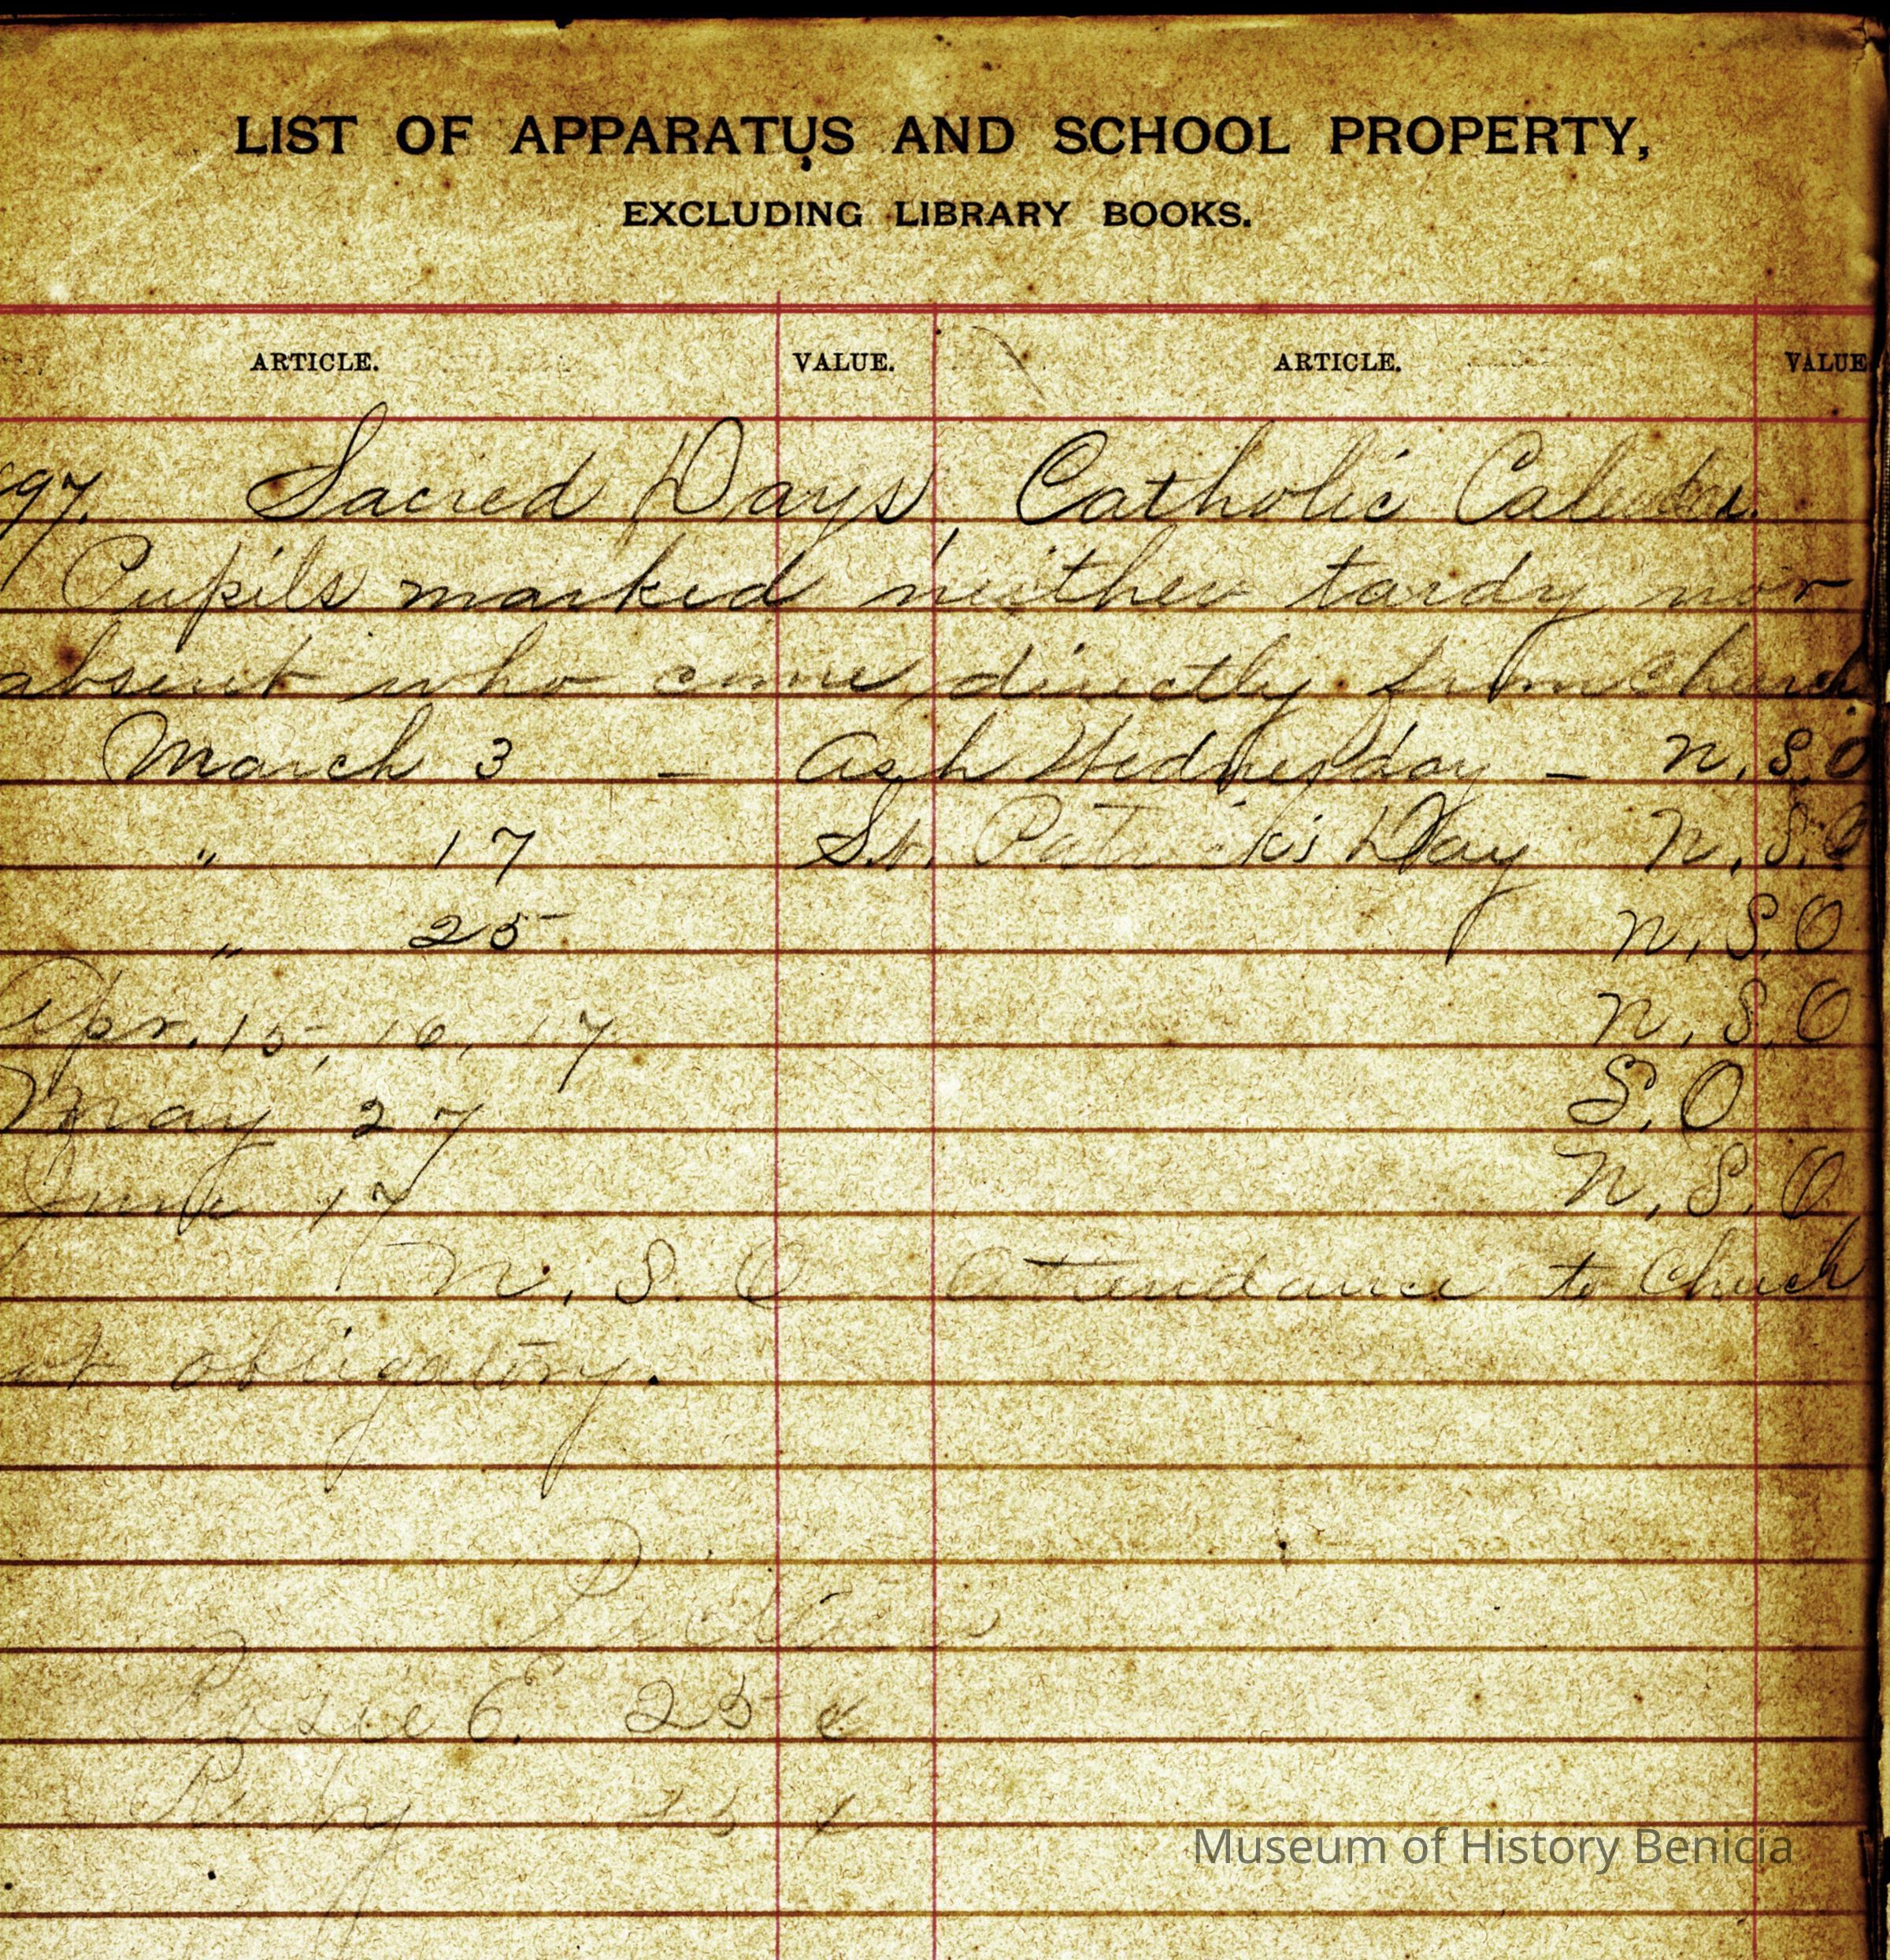 LIST OF APPARATUS AND SCHOOL PROPERTY,
EXCLUDING LIBRARY BOOKS.
ARTICLE. VALUE. ARTICLE. VALUE
97. Sacred Days, Catholic Calendar.
Pupils marked neither tardy nor
absent who come directly from Church.
March 3 - Ash Wednesday - N.S.O
" 17 St. Patrick's Day N.S.O
" 25 N.S.O
Apr. 15, 16, 17 N.S.O
May 27 S.O
June 17 N.S.O
N.S.O Attendance to Church
obligatory.
25 ¢
Ruby
Museum of History Benicia